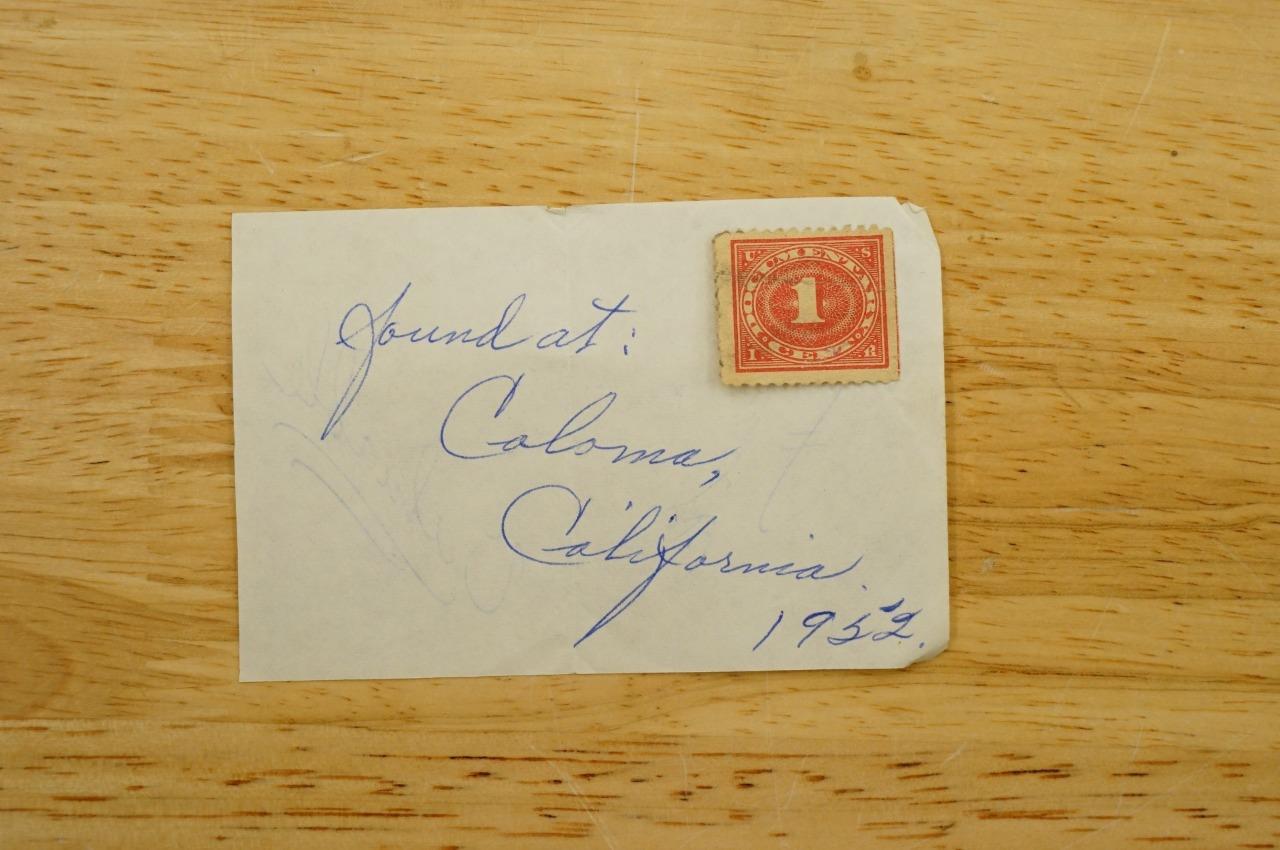 found at:
Coloma,
California.
1952.
U.S.
DOCUMENTARY
1
CENT
I.R